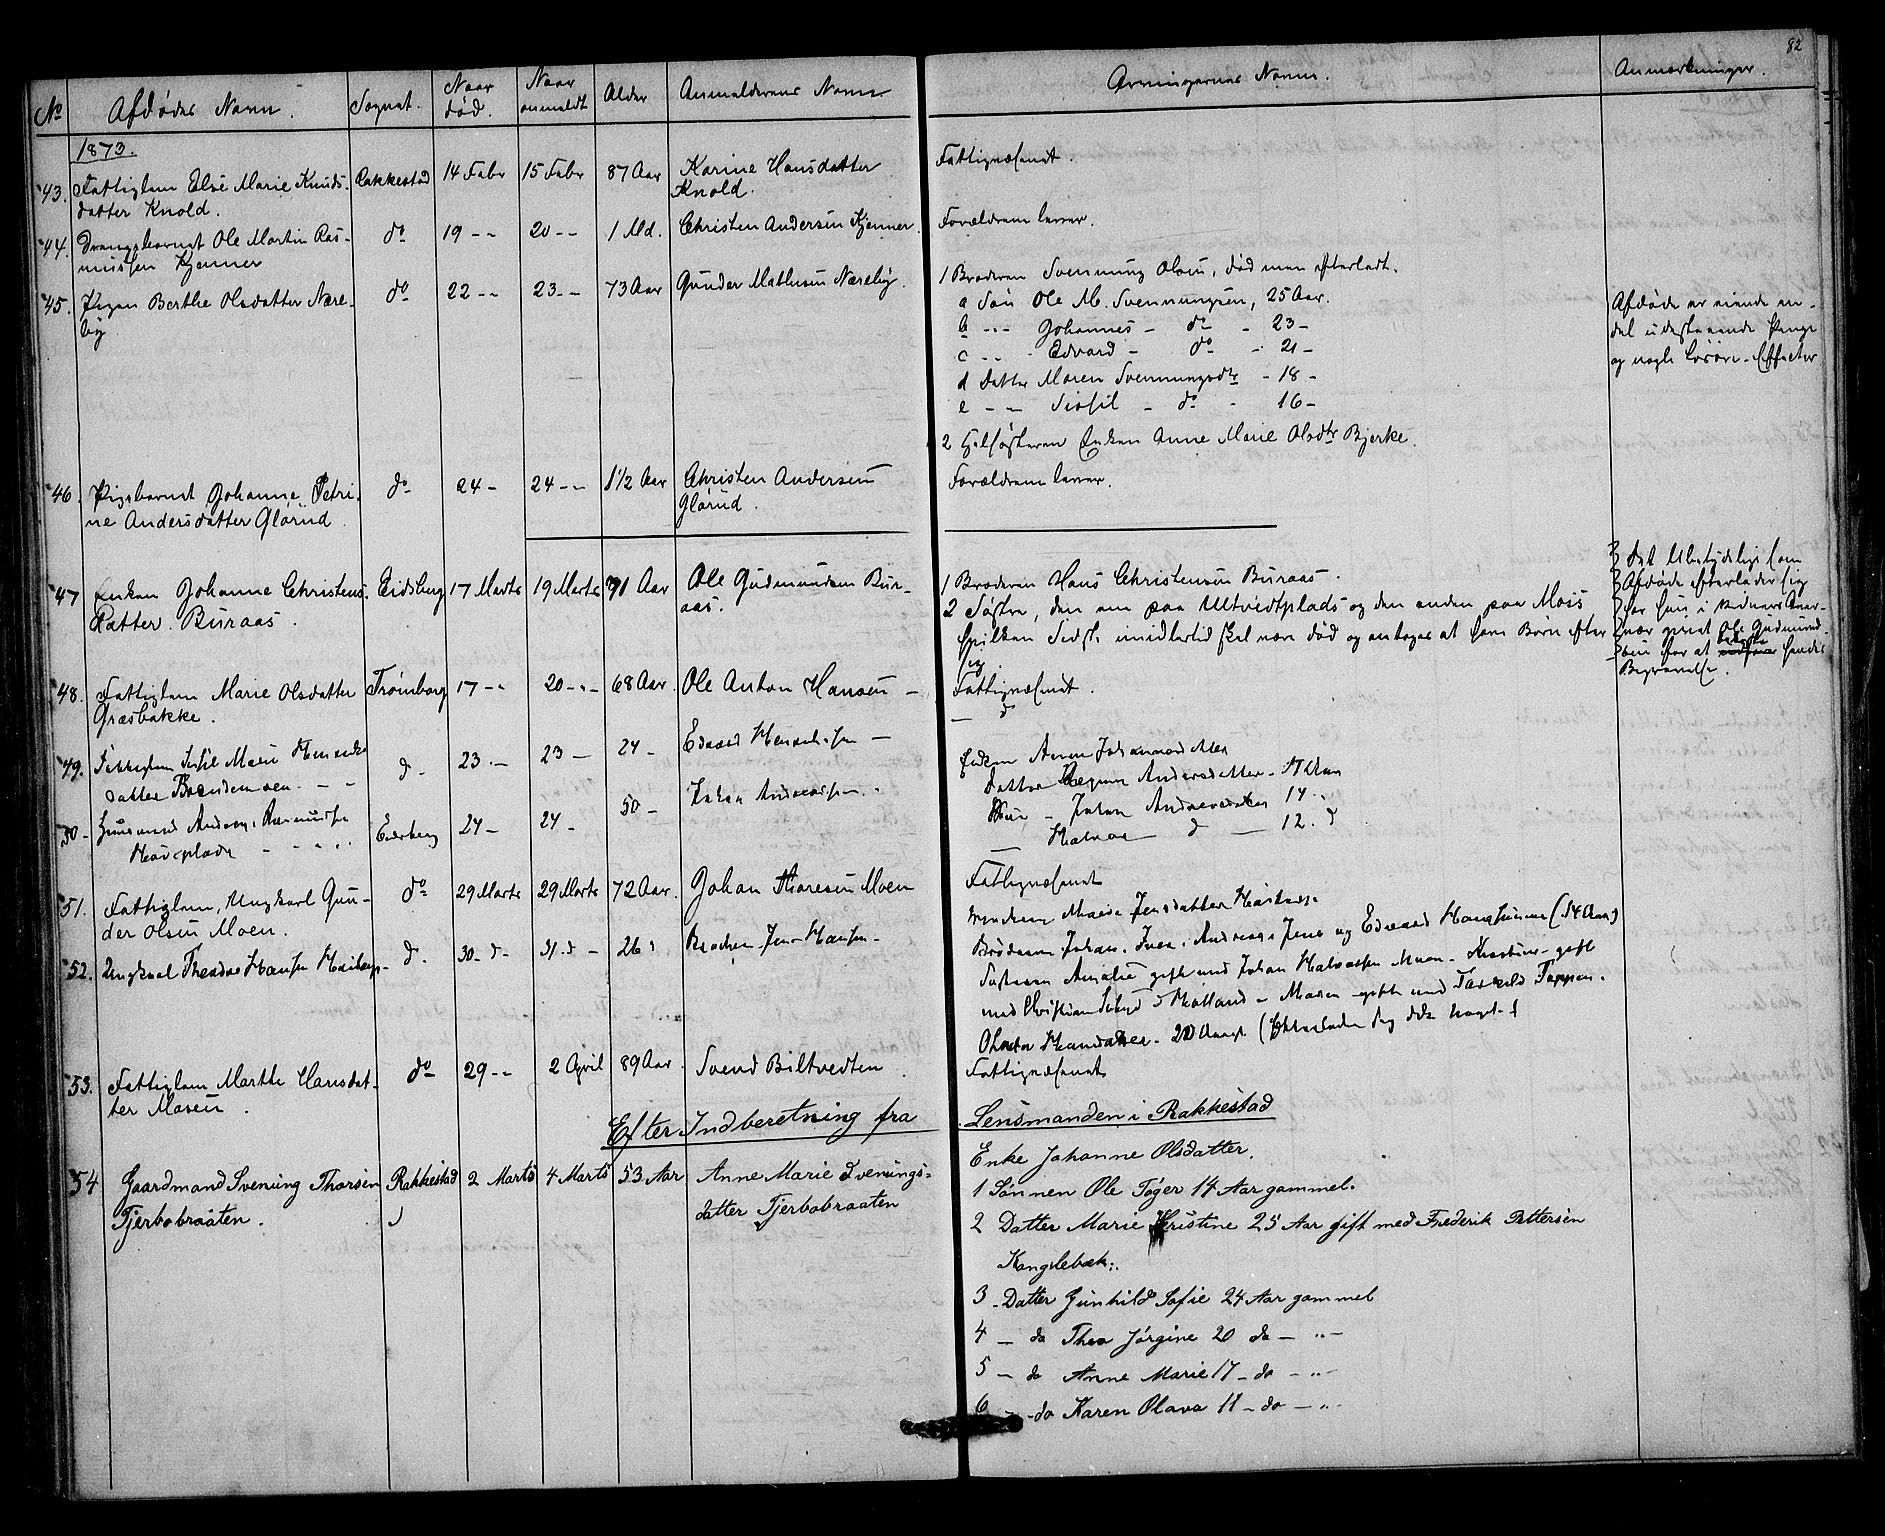 82
No Afdødes Navn. Sognet. Naar død. Naar anmeldt Alder Anmelderens Navn Arvingernes Navn. Anmærkninger.
1873.
43. Fattiglem Else Marie Knuds- Rakkestad 14 Febr 15 Febr 87 Aar Karine Hansdatter Fattigvæsenet.
datter Knold. Knold.
44. Drengebarnet Ole Martin Ras- do 19 -"- 20 -"- 1 Md. Christen Andersen Kjenner. Forældrene lever.
mussen Kjenner
45. Pigen Berthe Olsdatter Nære- do 22 -"- 23 -"- 73 Aar Gunder Mathisen Næreby. 1 Broderen Svenning Olsen, død men efterladt.
by. a Søn Ole M. Svenningsen, 25 Aar. Afdøde er eiende en-
b -"- Johannes - do - 23 - del udestaaende Penge
c -"- Edvard - do - 21 - og nogle Løsøre-Effecter
d Datter Maren Svenningsdtr - 18 -
e -"- Sissil - do - 16 -
2 Helsøsteren Enken Anne Marie Olsdtr Bjerke.
46. Pigebarnet Johanne Petri- do 24 - 24 -"- 1 1/2 Aar Christen Andersen Forældrene lever.
ne Andersdatter Glørud. Glørud.
47 Enken Johanne Christens- Eidsberg 17 Marts 19 Marts 91 Aar Ole Gudmundsen Bur- 1 Broderen Hans Christensen Buraas.
datter Buraas. aas. 2 Søstre, den ene paa Ultvedtplads og den anden paa Moss
hvilken Sidste imidlertid skal være død og antages at have Børn efter
sig
Det Ubetydelige som
Afdøde efterlader sig
har hun i Vidners Nær-
vær givet Ole Gudmund-
sen for at bekoste hendes
Begravelse.
48. Fattiglem Marie Olsdatter Trømborg 17 -"- 20 -"- 68 Aar. Ole Anton Hansen - Fattigvæsenet.
Græsbakke. - do
49. Fattiglem Marie d - 23 - 23 - 24 - Edvard
datter
50 - Husmand Andreas Eidsberg 24 - 24 - 50 - Johan Enken Maren Johannesdatter
Datter Andersdatter - Aar
Johan 14 "
Halvor - d - 12. d
51. Fattiglem, Ungkarl Gun- do 29 Marts 29 Marts 72 Aar. Johan Thoresen Moen Fattigvæsenet
der Olsen Moen.
52. Ungkarl Theodor Hansen d. 30 - d - 31 d - 26 " Broderen Jens Hansen - Moderen Marie Jensdatter
Brødrene Johan, Iver, Andreas, Jens og Edvard
Søsteren Amalie gift med Johan Halvorsen Moen - Kristine - gift
med Christian - Maren gift med
20 Aar (Efterlader sig ikke noget.)
53. Fattiglem Marthe Hansdat- do 29 -"- 2 April 89 Aar. Svend Biltvedten Fattigvæsenet.
ter Moseen.
Efter Indberetning fra Lensmanden i Rakkestad
54 Gaardmand Svening Thorsen Rakkestad 2 Marts 4 Marts 53 Aar Anne Marie Svenings- Enke Johanne Olsdatter.
Tjerbobraaten. datter Tjerbobraaten 1 Sønnen Ole Toger 14 Aar gammel.
2 Datter Marie Kristine 25 Aar gift med Frederik Pettersen
Kanglebæk.
3 - Datter Gunhild Sofie 24 Aar gammel
4 - do Thea Jørgine 20 do - " -
5 - do Anne Marie 17 - do - " -
6 - do Karen Olava 11 - do - " -